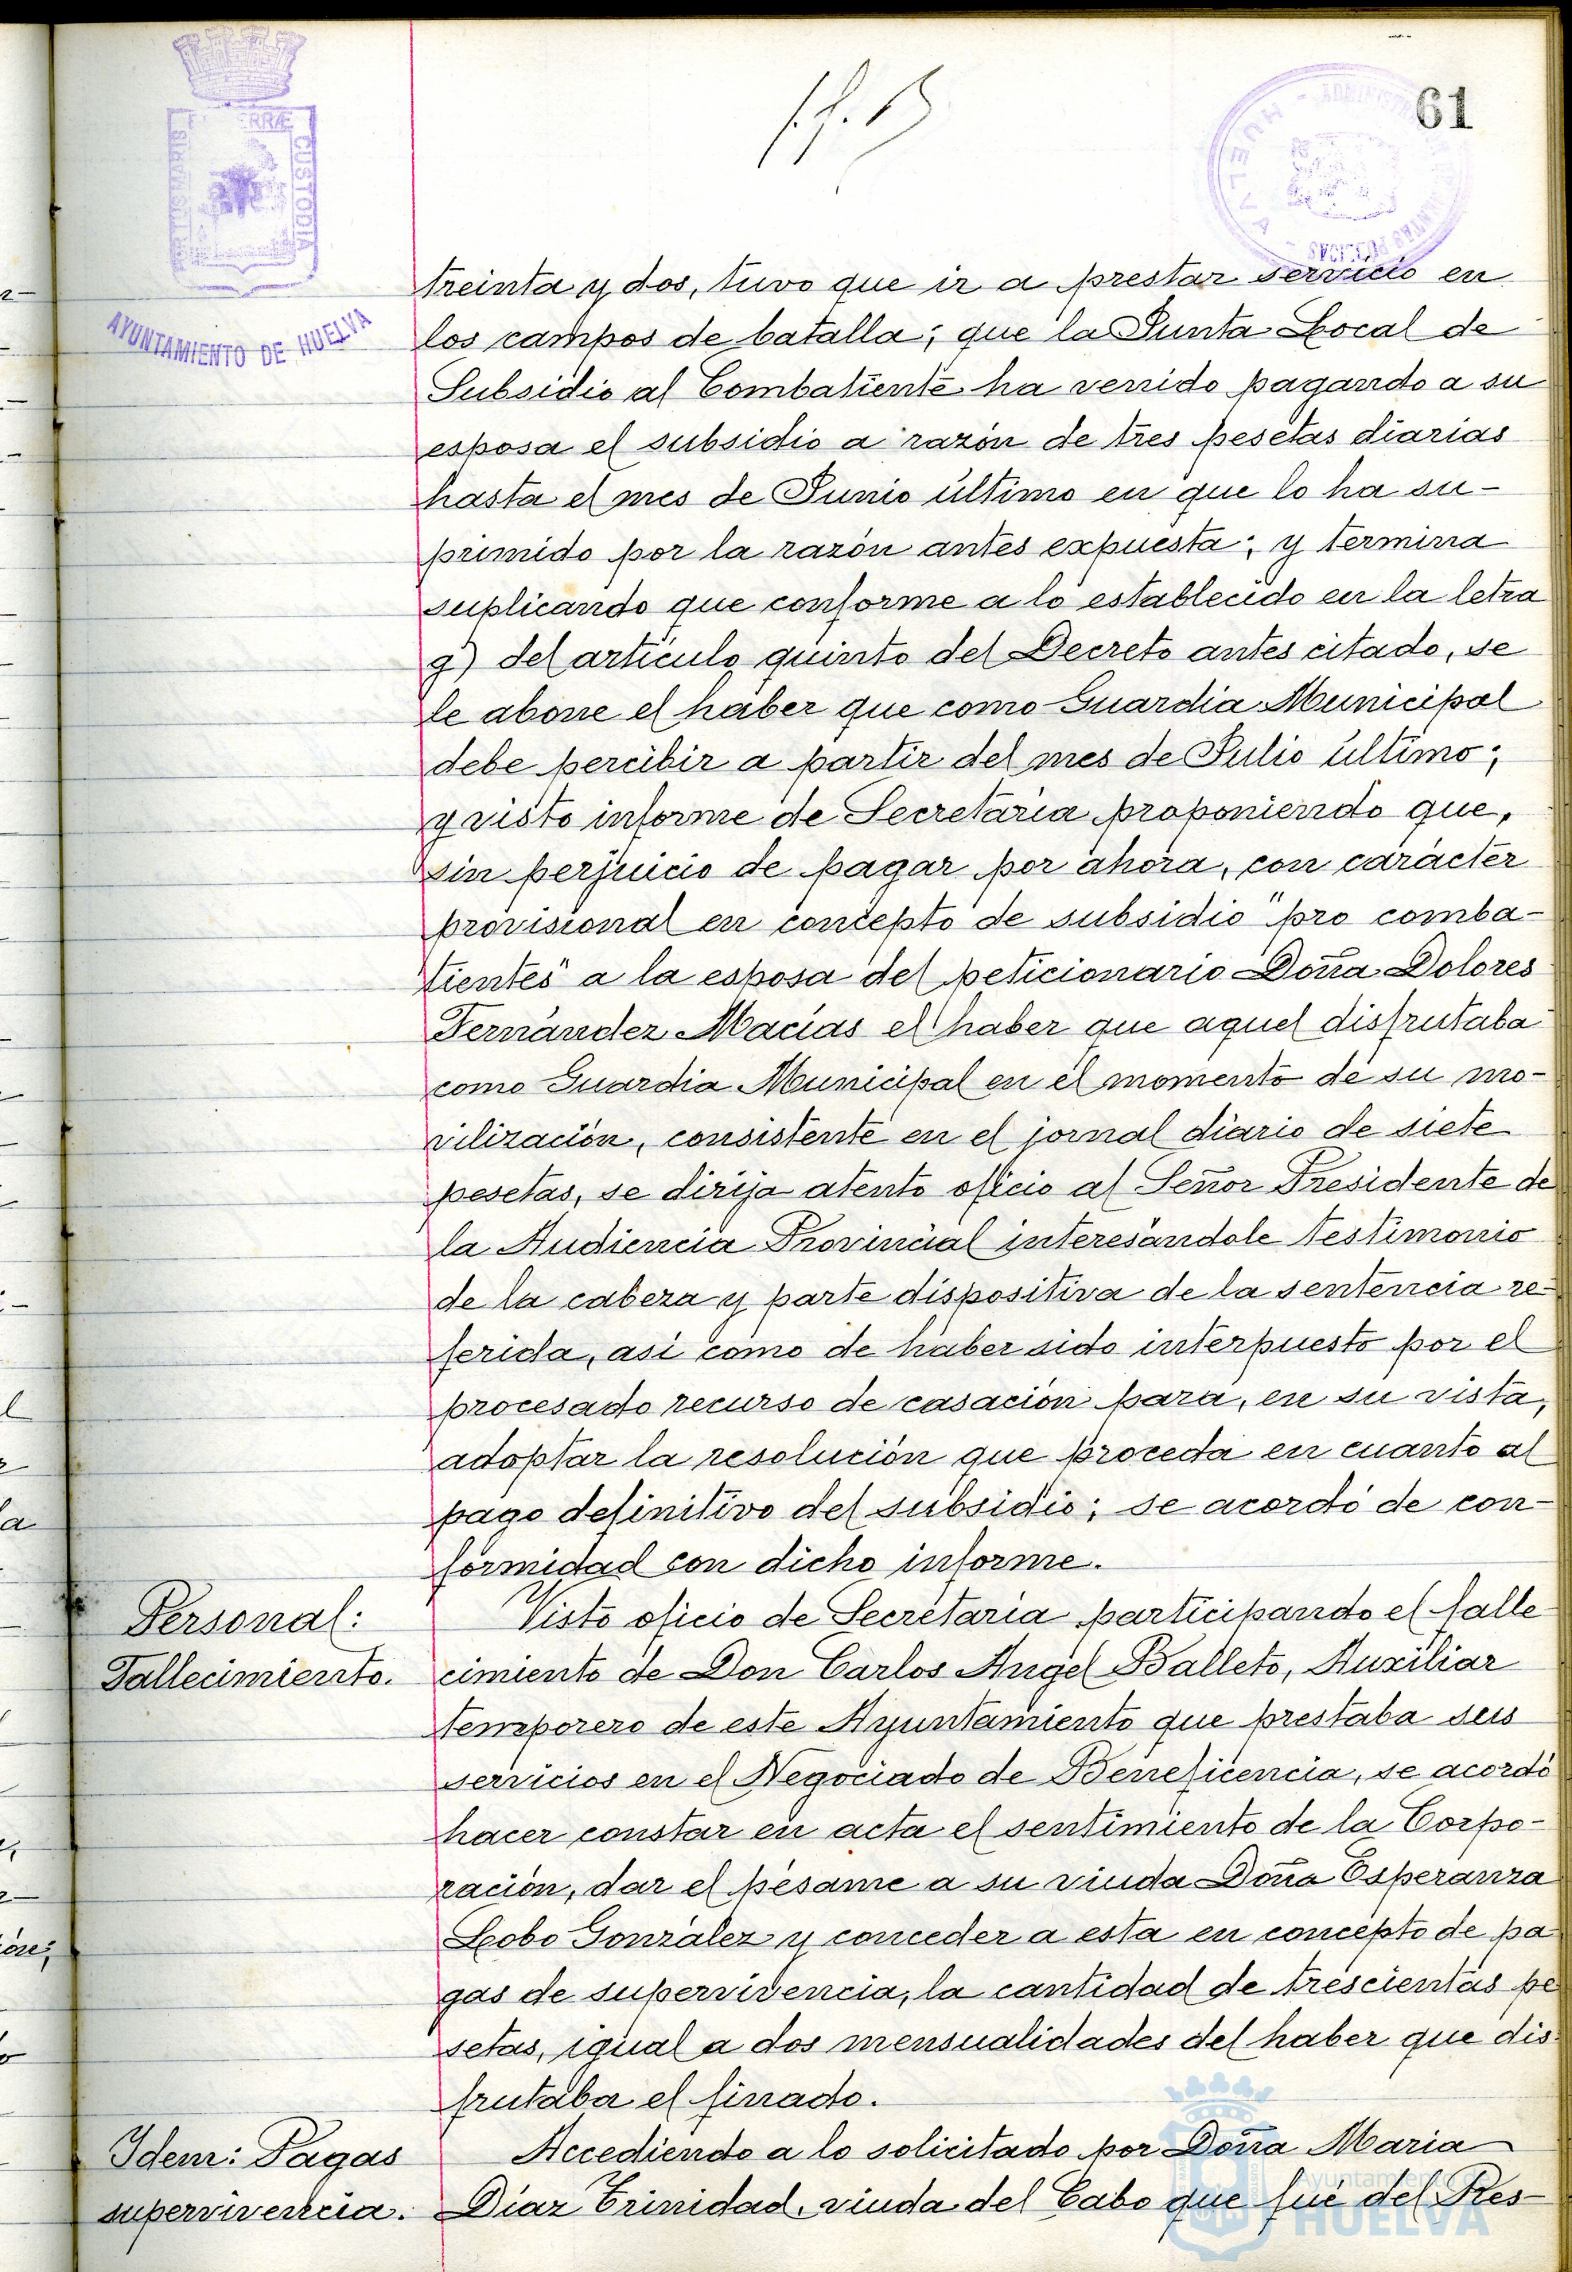 61
AYUNTAMIENTO DE HUELVA
CUSTODIA
HUELVA
treinta y dos, tuvo que ir a prestar servicio en
los campos de batalla; que la Junta Local de
Subsidio al Combatiente ha venido pagando a su
esposa el subsidio a razón de tres pesetas diarias
hasta el mes de Junio último en que lo ha su-
primido por la razón antes expuesta; y termina
suplicando que conforme a lo establecido en la letra
g) del artículo quinto del Decreto antes citado, se
le abone el haber que como Guardia Municipal
debe percibir a partir del mes de Julio último;
y visto informe de Secretaría proponiendo que,
sin perjuicio de pagar por ahora, con carácter
provisional en concepto de subsidio "pro comba-
tientes" a la esposa del peticionario Doña Dolores
Fernández Macías el haber que aquel disfrutaba
como Guardia Municipal en el momento de su mo-
vilización, consistente en el jornal diario de siete
pesetas, se dirija atento oficio al Señor Presidente de
la Audiencia Provincial interesándole testimonio
de la cabeza y parte dispositiva de la sentencia re-
ferida, así como de haber sido interpuesto por el
procesado recurso de casación para, en su vista,
adoptar la resolución que proceda en cuanto al
pago definitivo del subsidio; se acordó de con-
formidad con dicho informe.
Personal:
Fallecimiento.
Visto oficio de Secretaría participando el falle-
cimiento de Don Carlos Angel Balleto, Auxiliar
temporero de este Ayuntamiento que prestaba sus
servicios en el Negociado de Beneficencia, se acordó
hacer constar en acta el sentimiento de la Corpo-
ración, dar el pésame a su viuda Doña Esperanza
Lobo González y conceder a esta en concepto de pa
gas de supervivencia, la cantidad de trescientas pe
setas, igual a dos mensualidades del haber que dis
frutaba el finado.
Idem: Pagas
supervivencia.
Accediendo a lo solicitado por Doña Maria
Díaz Trinidad, viuda del Cabo que fué del Res-
Ayuntamiento de
HUELVA